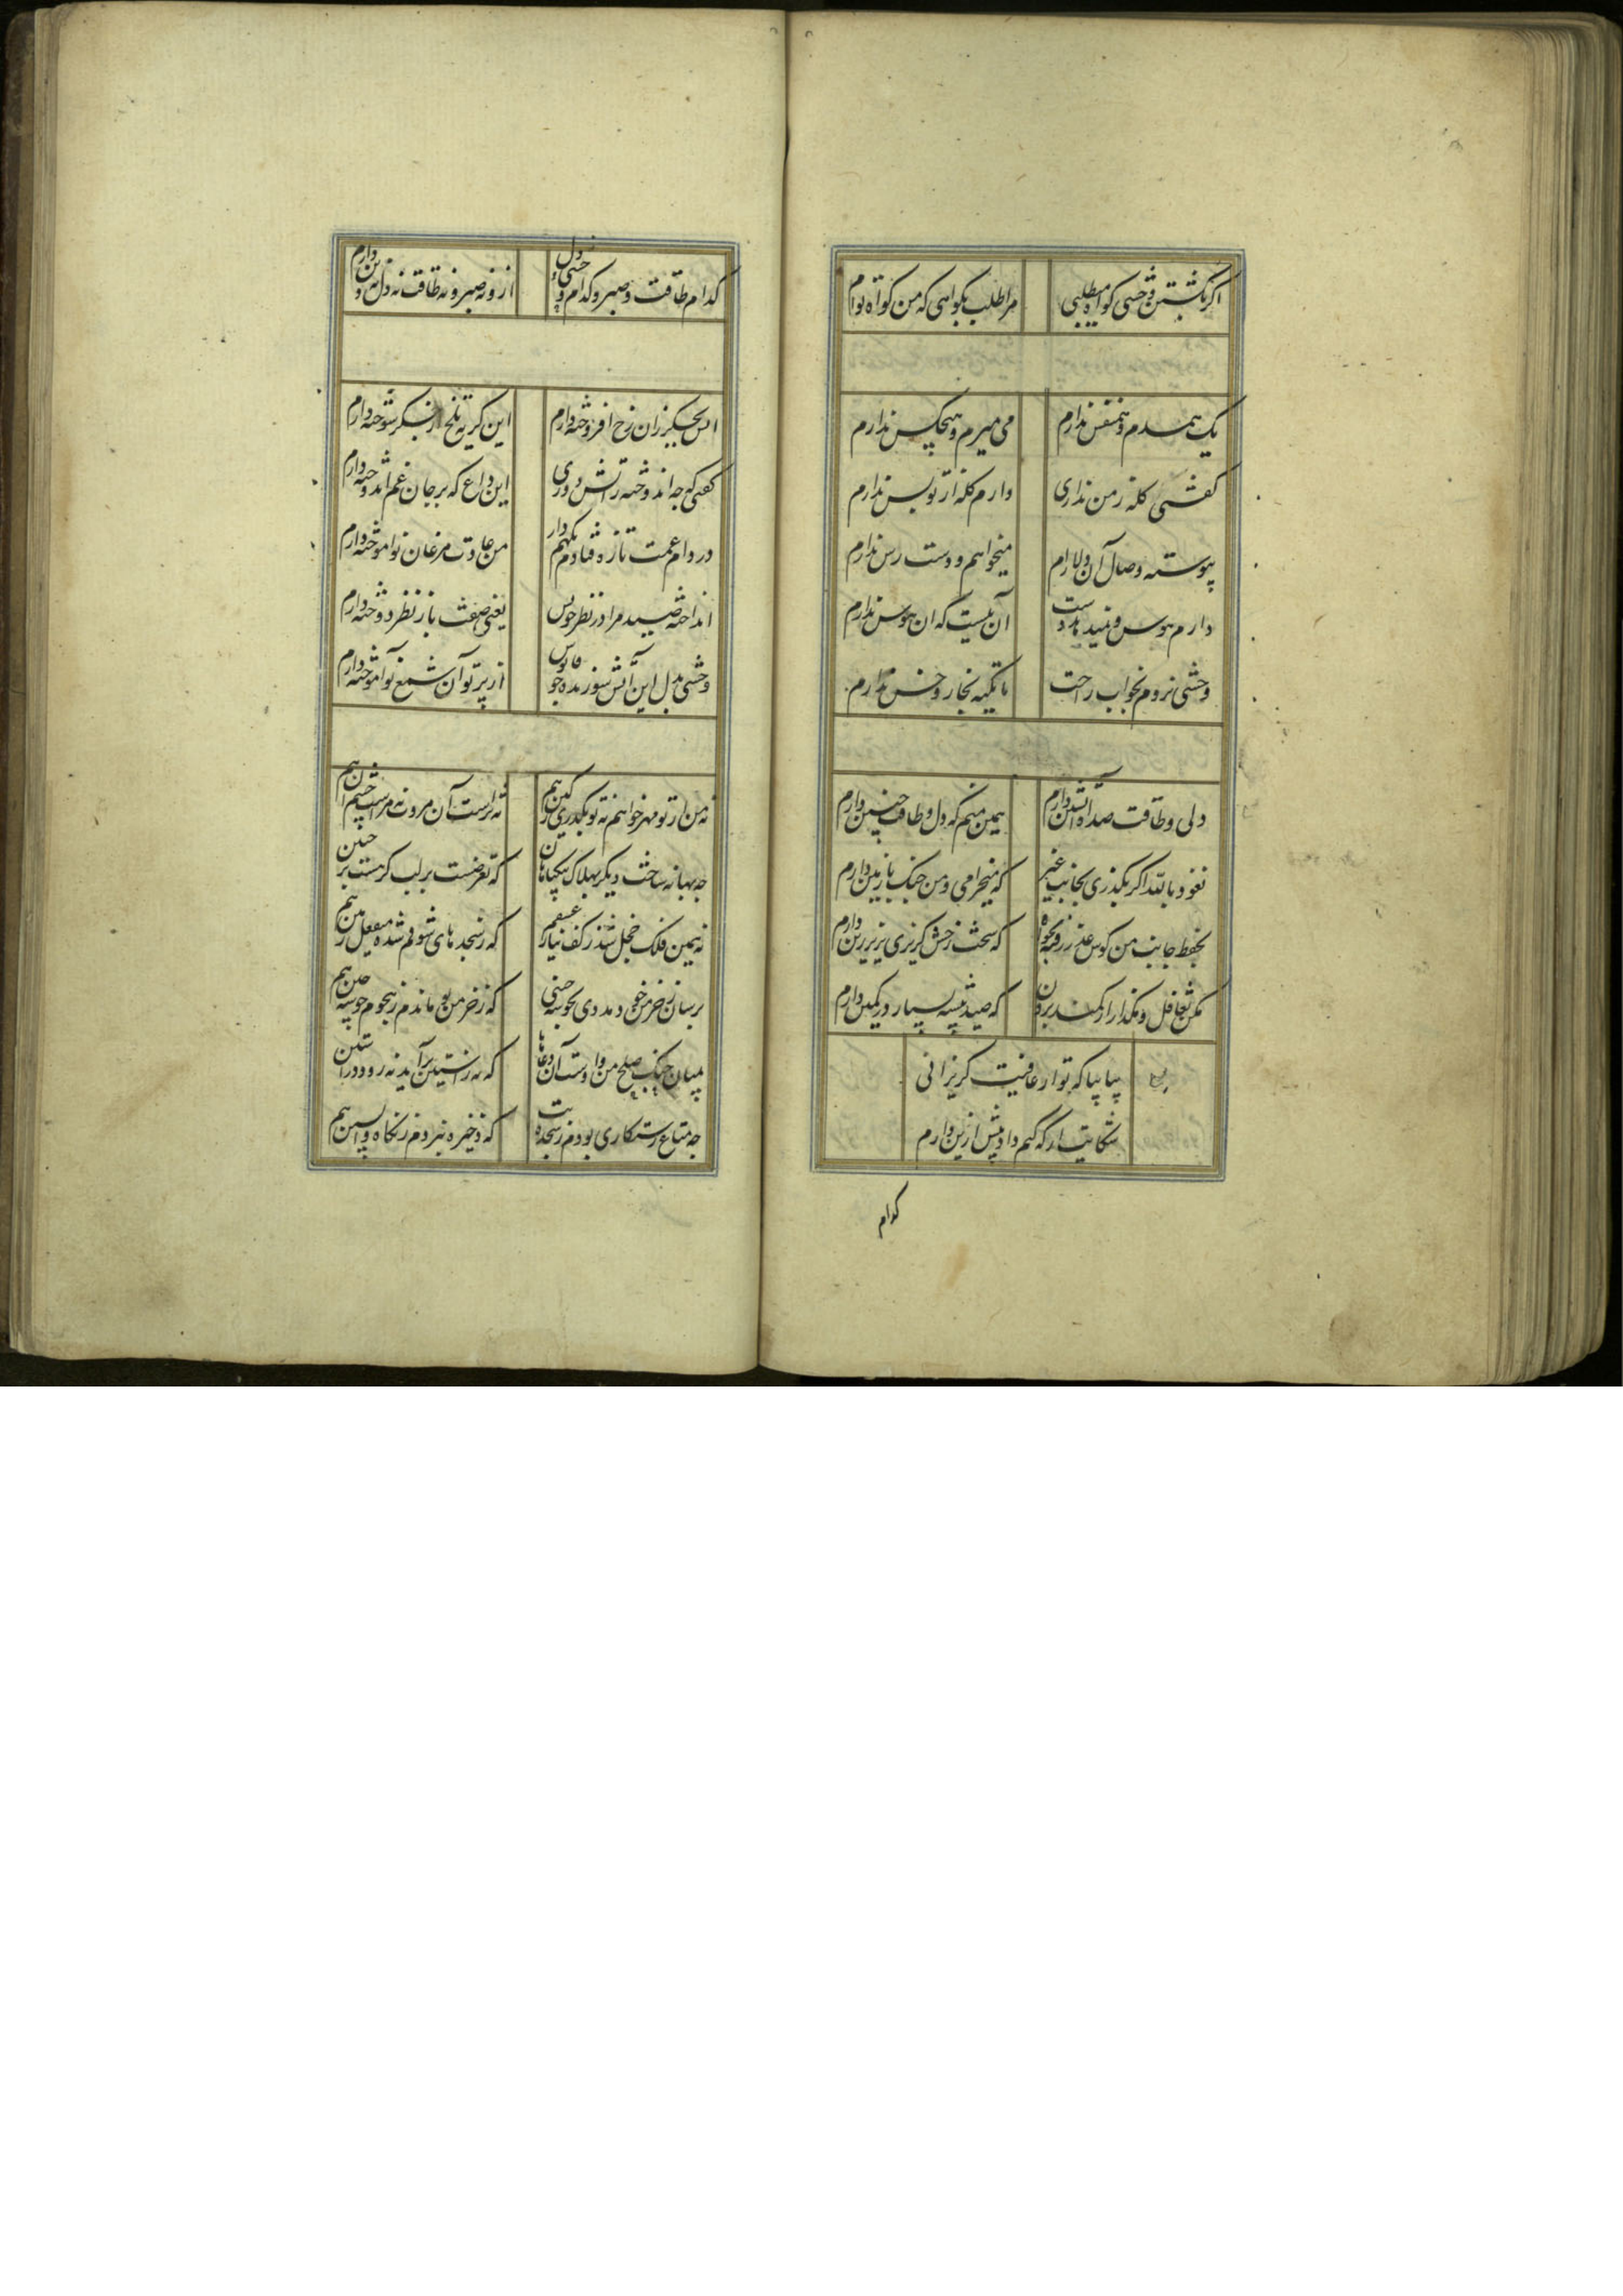 اگر بکشتن وحشی گواه میطلبی مرا طلب بگواهی که من گواه توام
یک همدم و همنفس ندارم می میرم و هیچکس ندارم
گفتی گله ز من نداری دارم گله از تو بس ندارم
پیوسته وصال آن دلارام میخواهم و دست رس ندارم
دارم هوس و نمیدهد دست آن نیست که آن هوس ندارم
وحشی نروم بخواب راحت تا تکیه بخار و خس ندارم
دلی و طاقت صد آه آتشین دارم همین منم که دل و طاقت چنین دارم
نعوذ بالله اگر بگذری بجانب غیر که میخرامی و من جنگ با زمین دارم
بحفظ جانب من کوش که سخت رخش گریزی بزیر زین دارم
مکن تغافل و مگذار از کمند برون که صید پیشه بسیار در کمین دارم
بیا بیا که تو از عافیت گریزانی
شکایت ار که کم داد پیش ازین دارم
کدام
کدام طاقت و صبر و کدام دل وحشی ازو نه صبر و نه طاقت نه دل نه دین دارم
آتش بجگر زان رخ افروخته دارم این گریه تلخ از جگر سوخته دارم
گفتی که چه اندوخته ز آتش دوری این داغ که بر جان غم اندوخته دارم
در دام غمت تازه فتادم نگهم دار من عادت مرغان نوآموخته دارم
انداخته صید مرا در نظر خویش یعنی صفت باز نظر دوخته دارم
وحشی بدل این آتش سوزنده چو فانوس از پرتو آن شمع نوآموخته دارم
نه من از تو مهر خواهم نه تو بگذری ز کین هم نه تراست آن مروت نه مراست چشم این هم
چه بهانه ساخت دیگر بهلاک بیگناهان که تعرضست بر لب گرهست بر جبین هم
نه همین فلک خجل شد ز کف نیاز عشقم که ز سجده های شوقم شده منفعل زمین هم
برسان ز خرمن خود مددی بخوشه چینی که ز خرمن تو ماندم ز هجوم خوشه چین هم
بمیان جنگ و صلحش من و دست و آن دعاها که نه ز آستین برآید نه رود در آستین هم
چه متاع رستگاری بودم ز سجده بت که ذخیره نبردم ز نگاه واپسین هم